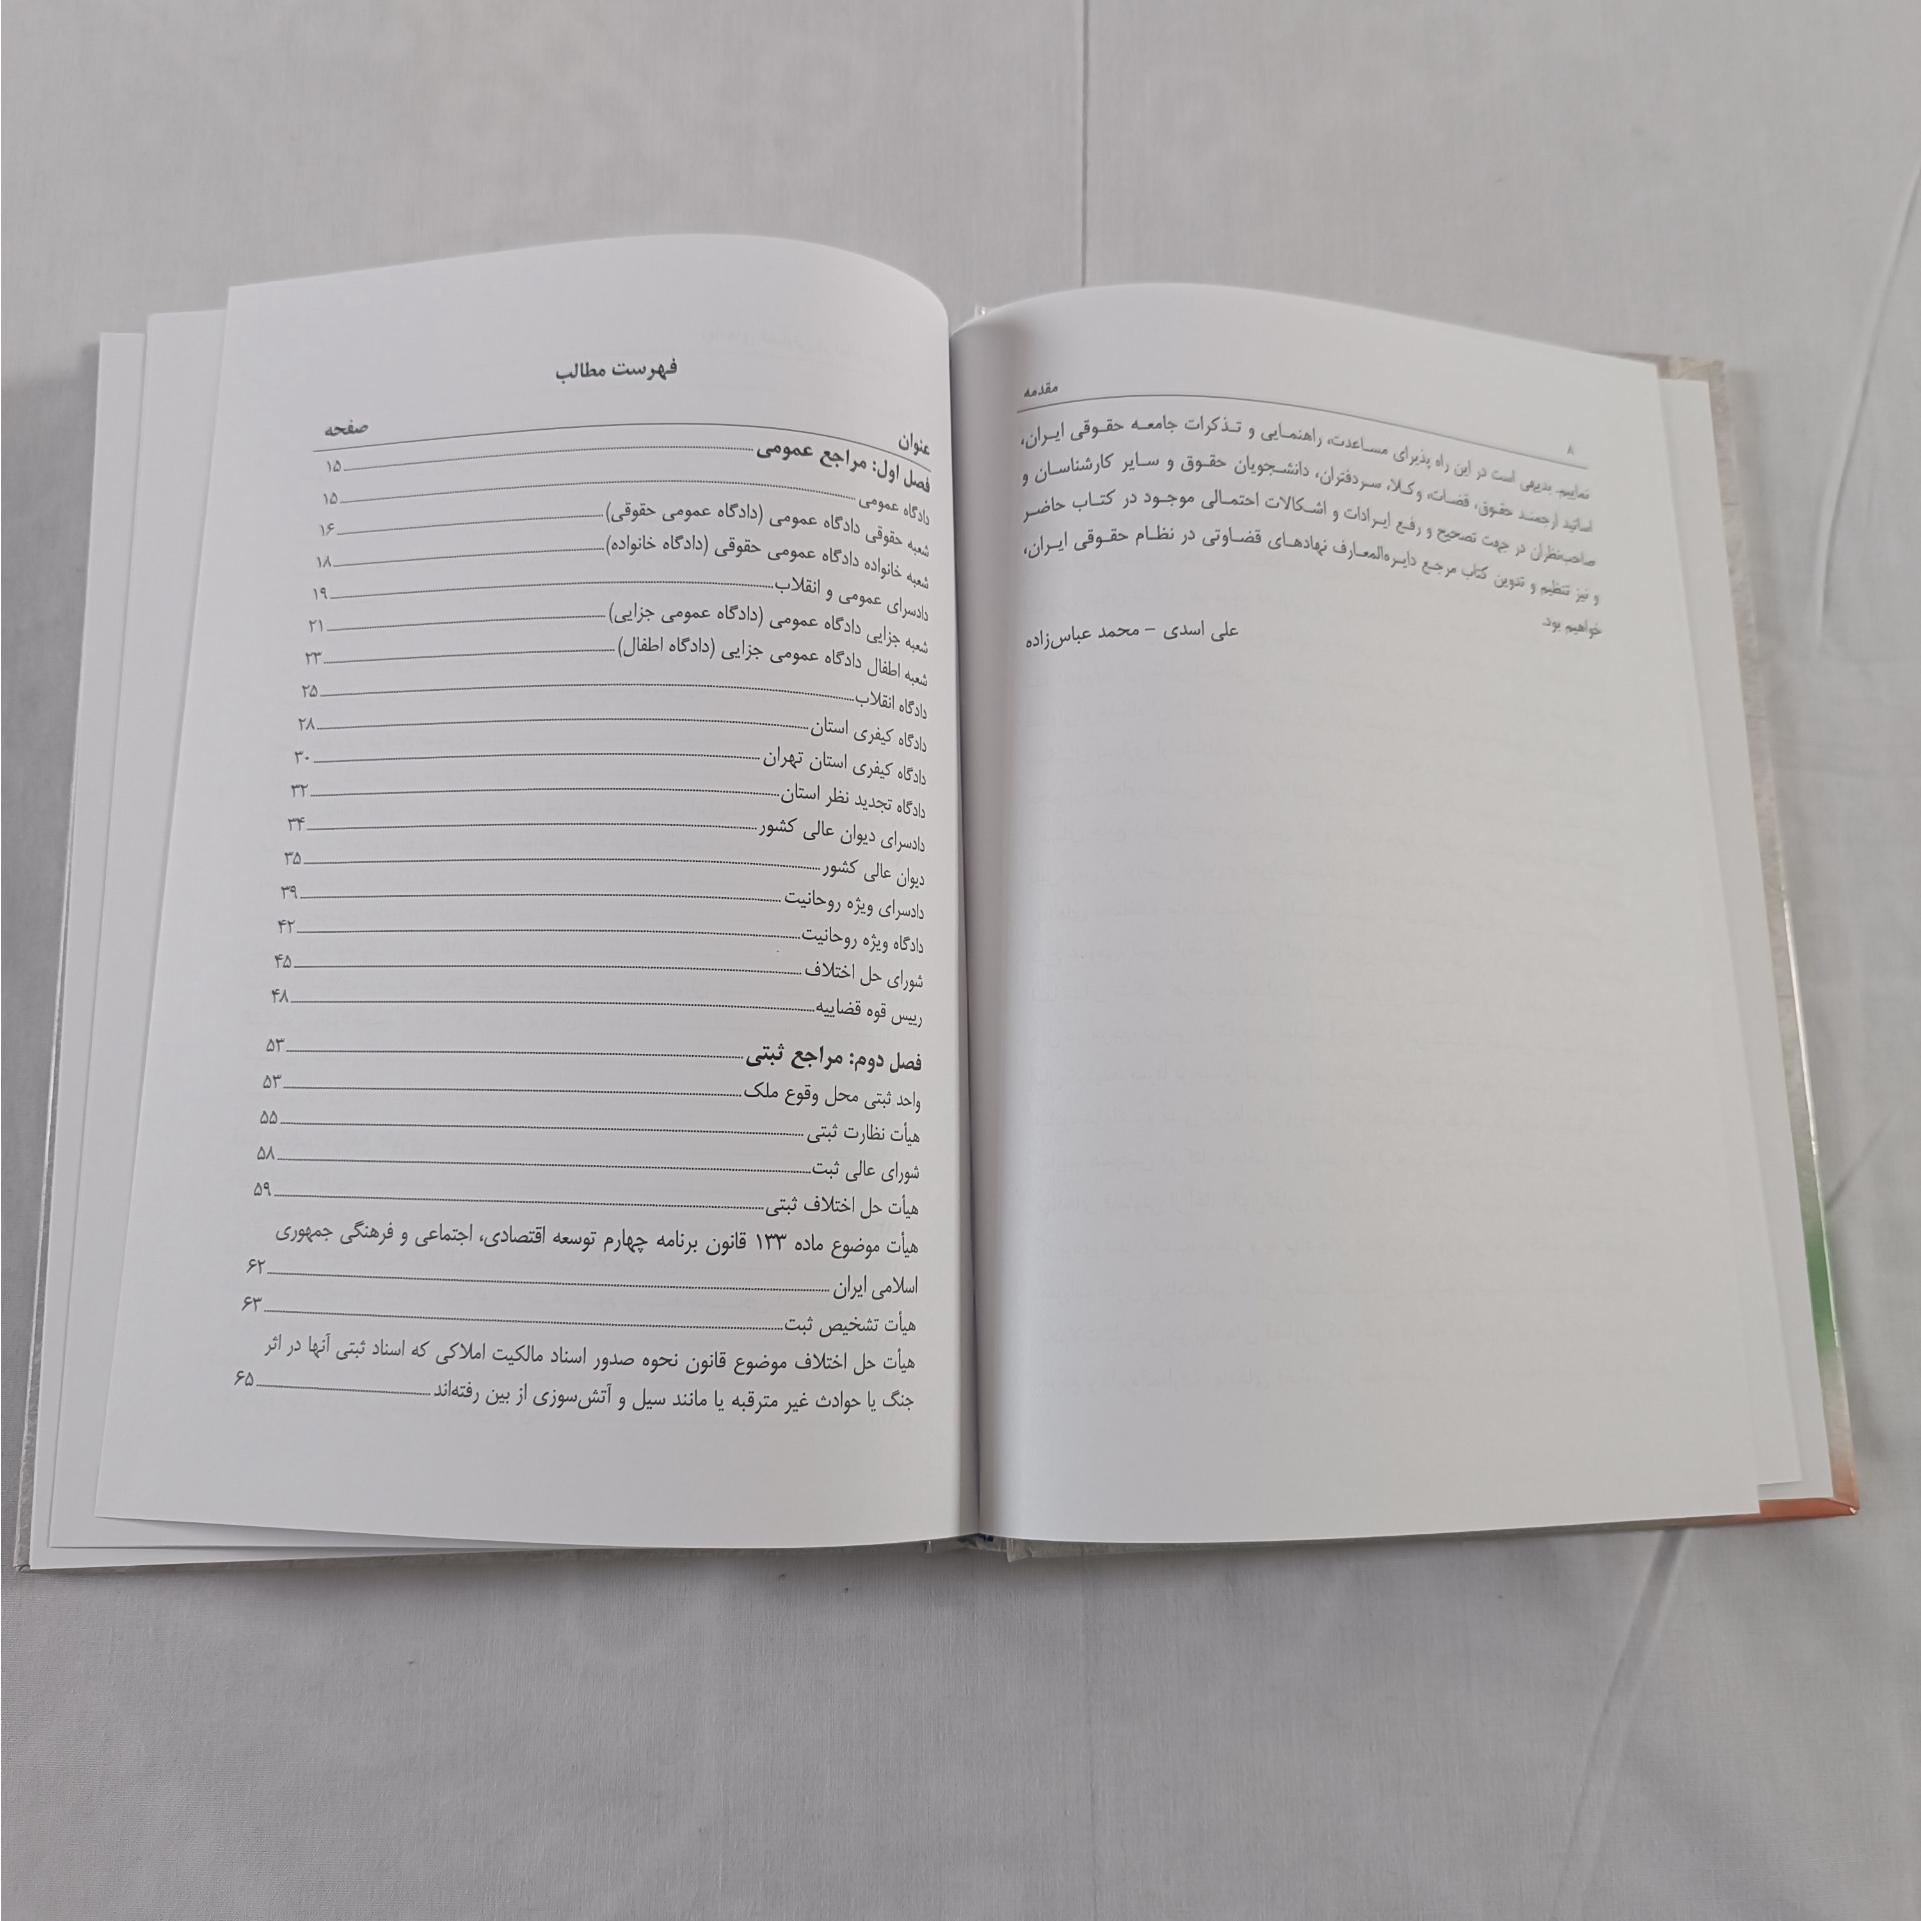 ۸
مقدمه
نماییم. بدیهی است در این راه پذیرای مساعدت، راهنمایی و تذکرات جامعه حقوقی ایران،
اساتید ارجمند حقوق، قضات، وکلا، سردفتران، دانشجویان حقوق و سایر کارشناسان و
صاحب‌نظران در جهت تصحیح و رفع ایرادات و اشکالات احتمالی موجود در کتاب حاضر
و نیز تنظیم و تدوین کتاب مرجع دایره‌المعارف نهادهای قضاوتی در نظام حقوقی ایران،
خواهیم بود.
علی اسدی – محمد عباس‌زاده
فهرست مطالب
عنوان صفحه
فصل اول: مراجع عمومی ۱۵
دادگاه عمومی ۱۵
شعبه حقوقی دادگاه عمومی (دادگاه عمومی حقوقی) ۱۶
شعبه خانواده دادگاه عمومی حقوقی (دادگاه خانواده) ۱۸
دادسرای عمومی و انقلاب ۱۹
شعبه جزایی دادگاه عمومی (دادگاه عمومی جزایی) ۲۱
شعبه اطفال دادگاه عمومی جزایی (دادگاه اطفال) ۲۳
دادگاه انقلاب ۲۵
دادگاه کیفری استان ۲۸
دادگاه کیفری استان تهران ۳۰
دادگاه تجدید نظر استان ۳۲
دادسرای دیوان عالی کشور ۳۴
دیوان عالی کشور ۳۵
دادسرای ویژه روحانیت ۳۹
دادگاه ویژه روحانیت ۴۲
شورای حل اختلاف ۴۵
رییس قوه قضاییه ۴۸
فصل دوم: مراجع ثبتی ۵۳
واحد ثبتی محل وقوع ملک ۵۳
هیأت نظارت ثبتی ۵۵
شورای عالی ثبت ۵۸
هیأت حل اختلاف ثبتی ۵۹
هیأت موضوع ماده ۱۳۳ قانون برنامه چهارم توسعه اقتصادی، اجتماعی و فرهنگی جمهوری
اسلامی ایران ۶۲
هیأت تشخیص ثبت ۶۳
هیأت حل اختلاف موضوع قانون نحوه صدور اسناد مالکیت املاکی که اسناد ثبتی آنها در اثر
جنگ یا حوادث غیر مترقبه یا مانند سیل و آتش‌سوزی از بین رفته‌اند ۶۵